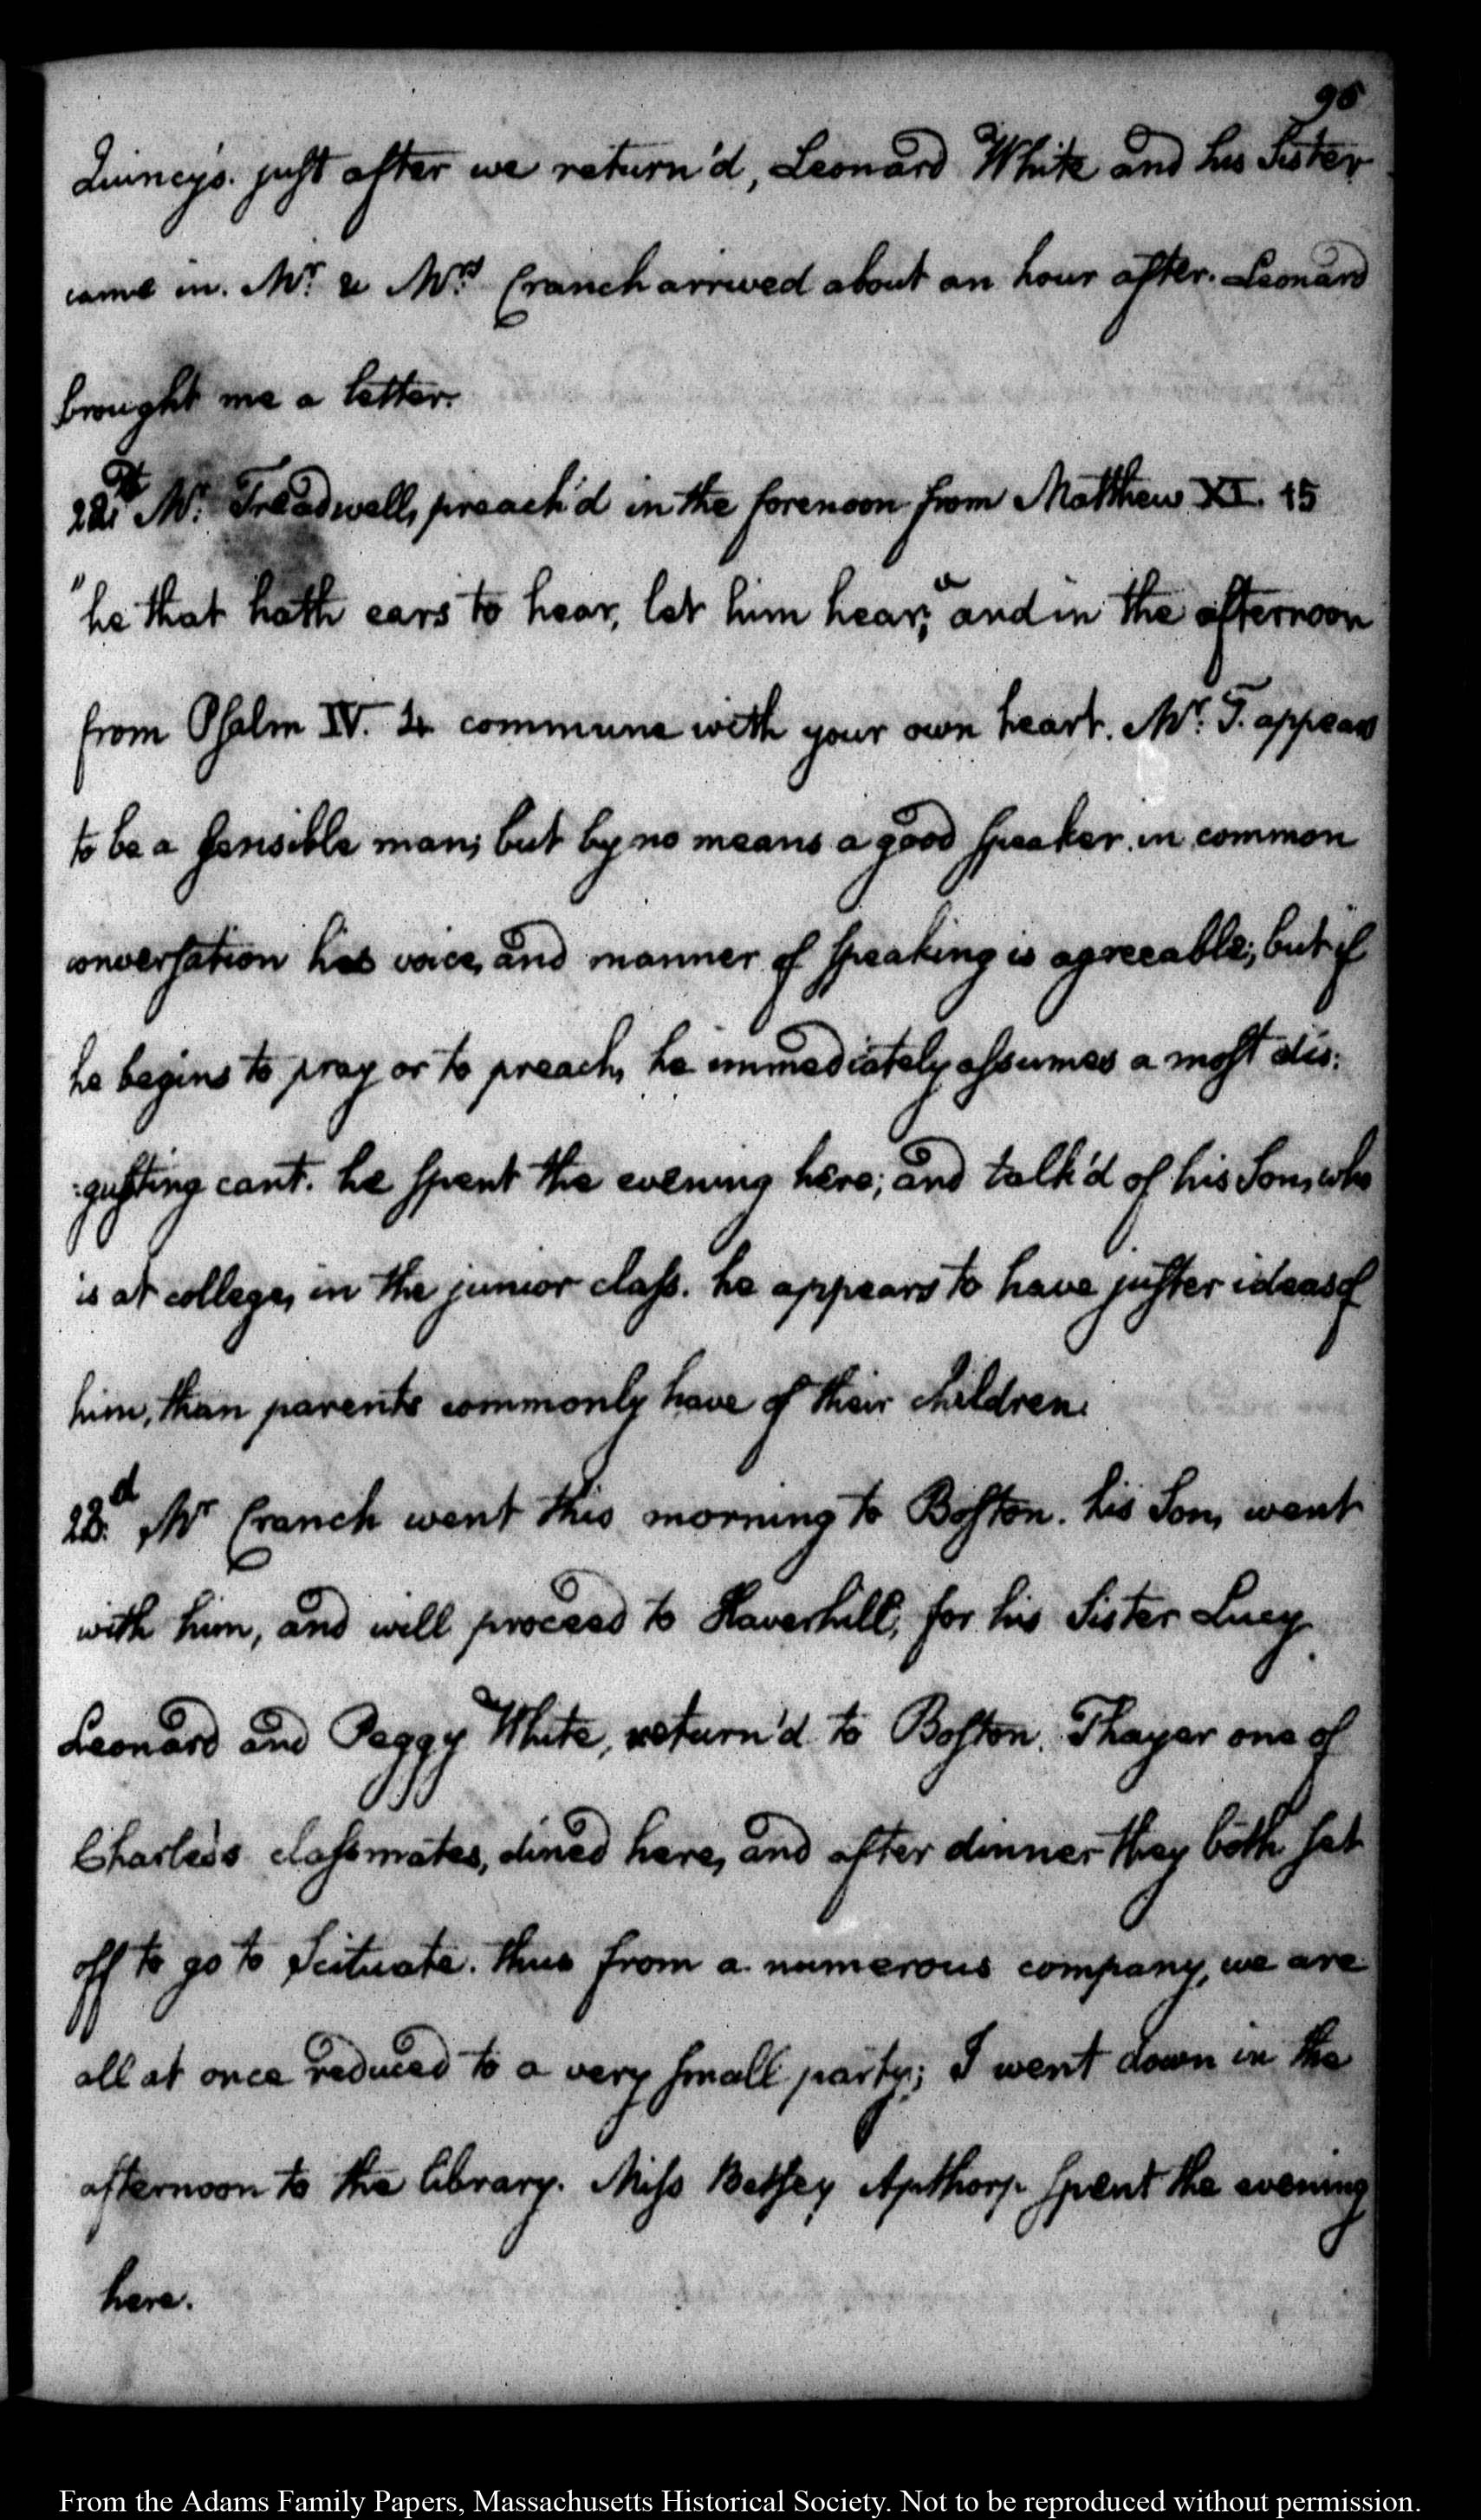 95
Quincy's. just after we return'd, Leonard White and his Sister
came in. Mr. & Mrs. Cranch arrived about an hour after. Leonard
brought me a letter.
22d. Mr. Treadwell, preach'd in the forenoon from Matthew XI. 15
"he that hath ears to hear, let him hear;" and in the afternoon
from Psalm IV. 4 commune with your own heart. Mr. T. appears
to be a sensible man; but by no means a good speaker. in common
conversation his voice, and manner of speaking is agreeable; but if
he begins to pray or to preach, he immediately assumes a most dis:
:gusting cant. he spent the evening here; and talk'd of his Son, who
is at college, in the junior class. he appears to have juster ideas of
him, than parents commonly have of their children.
23.d Mr Cranch went this morning to Boston. his Son, went
with him, and will proceed to Haverhill, for his Sister Lucy.
Leonard and Peggy White, return'd to Boston. Thayer one of
Charles's classmates, dined here, and after dinner they both set
off to go to Scituate. thus from a numerous company, we are
all at once reduced to a very small party; I went down in the
afternoon to the library. Miss Betsey Apthorp spent the evening
here.
From the Adams Family Papers, Massachusetts Historical Society. Not to be reproduced without permission.